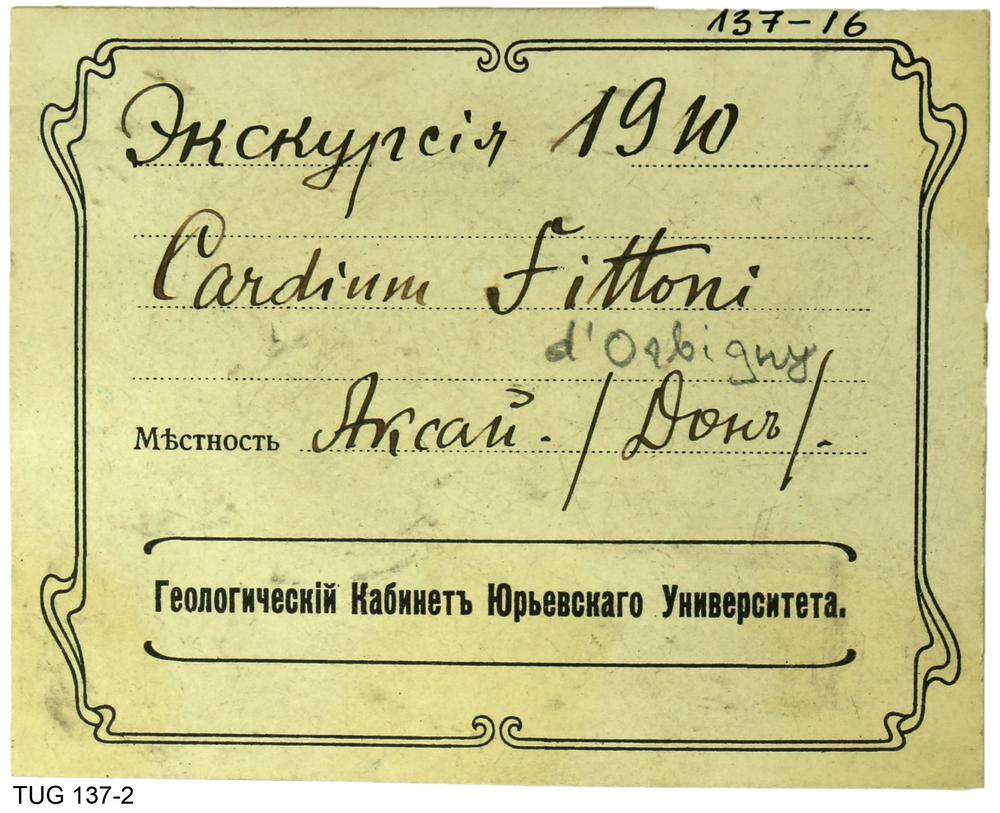 137-16
Экскурсія 1910
Cardium Fittoni
d'Orbigny
Мѣстность Аксай. / Донъ /.
Геологическій Кабинетъ Юрьевскаго Университета.
TUG 137-2